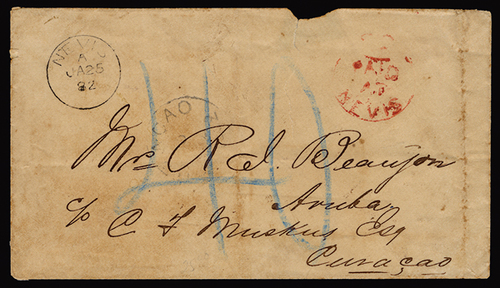 NEVIS
A
JA 25
82
PAID
AT
NEVIS
40
Mr R. J. Beaujon
Aruba
c/o C J Muskus Esq
Curaçao